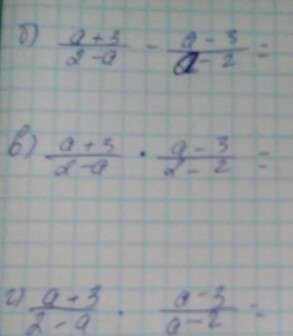 б) a+3/2-a - a-3/a-2 =
в) a+3/2-a · a-3/2-2 =
г) a+3/2-a · a-3/a-2 =